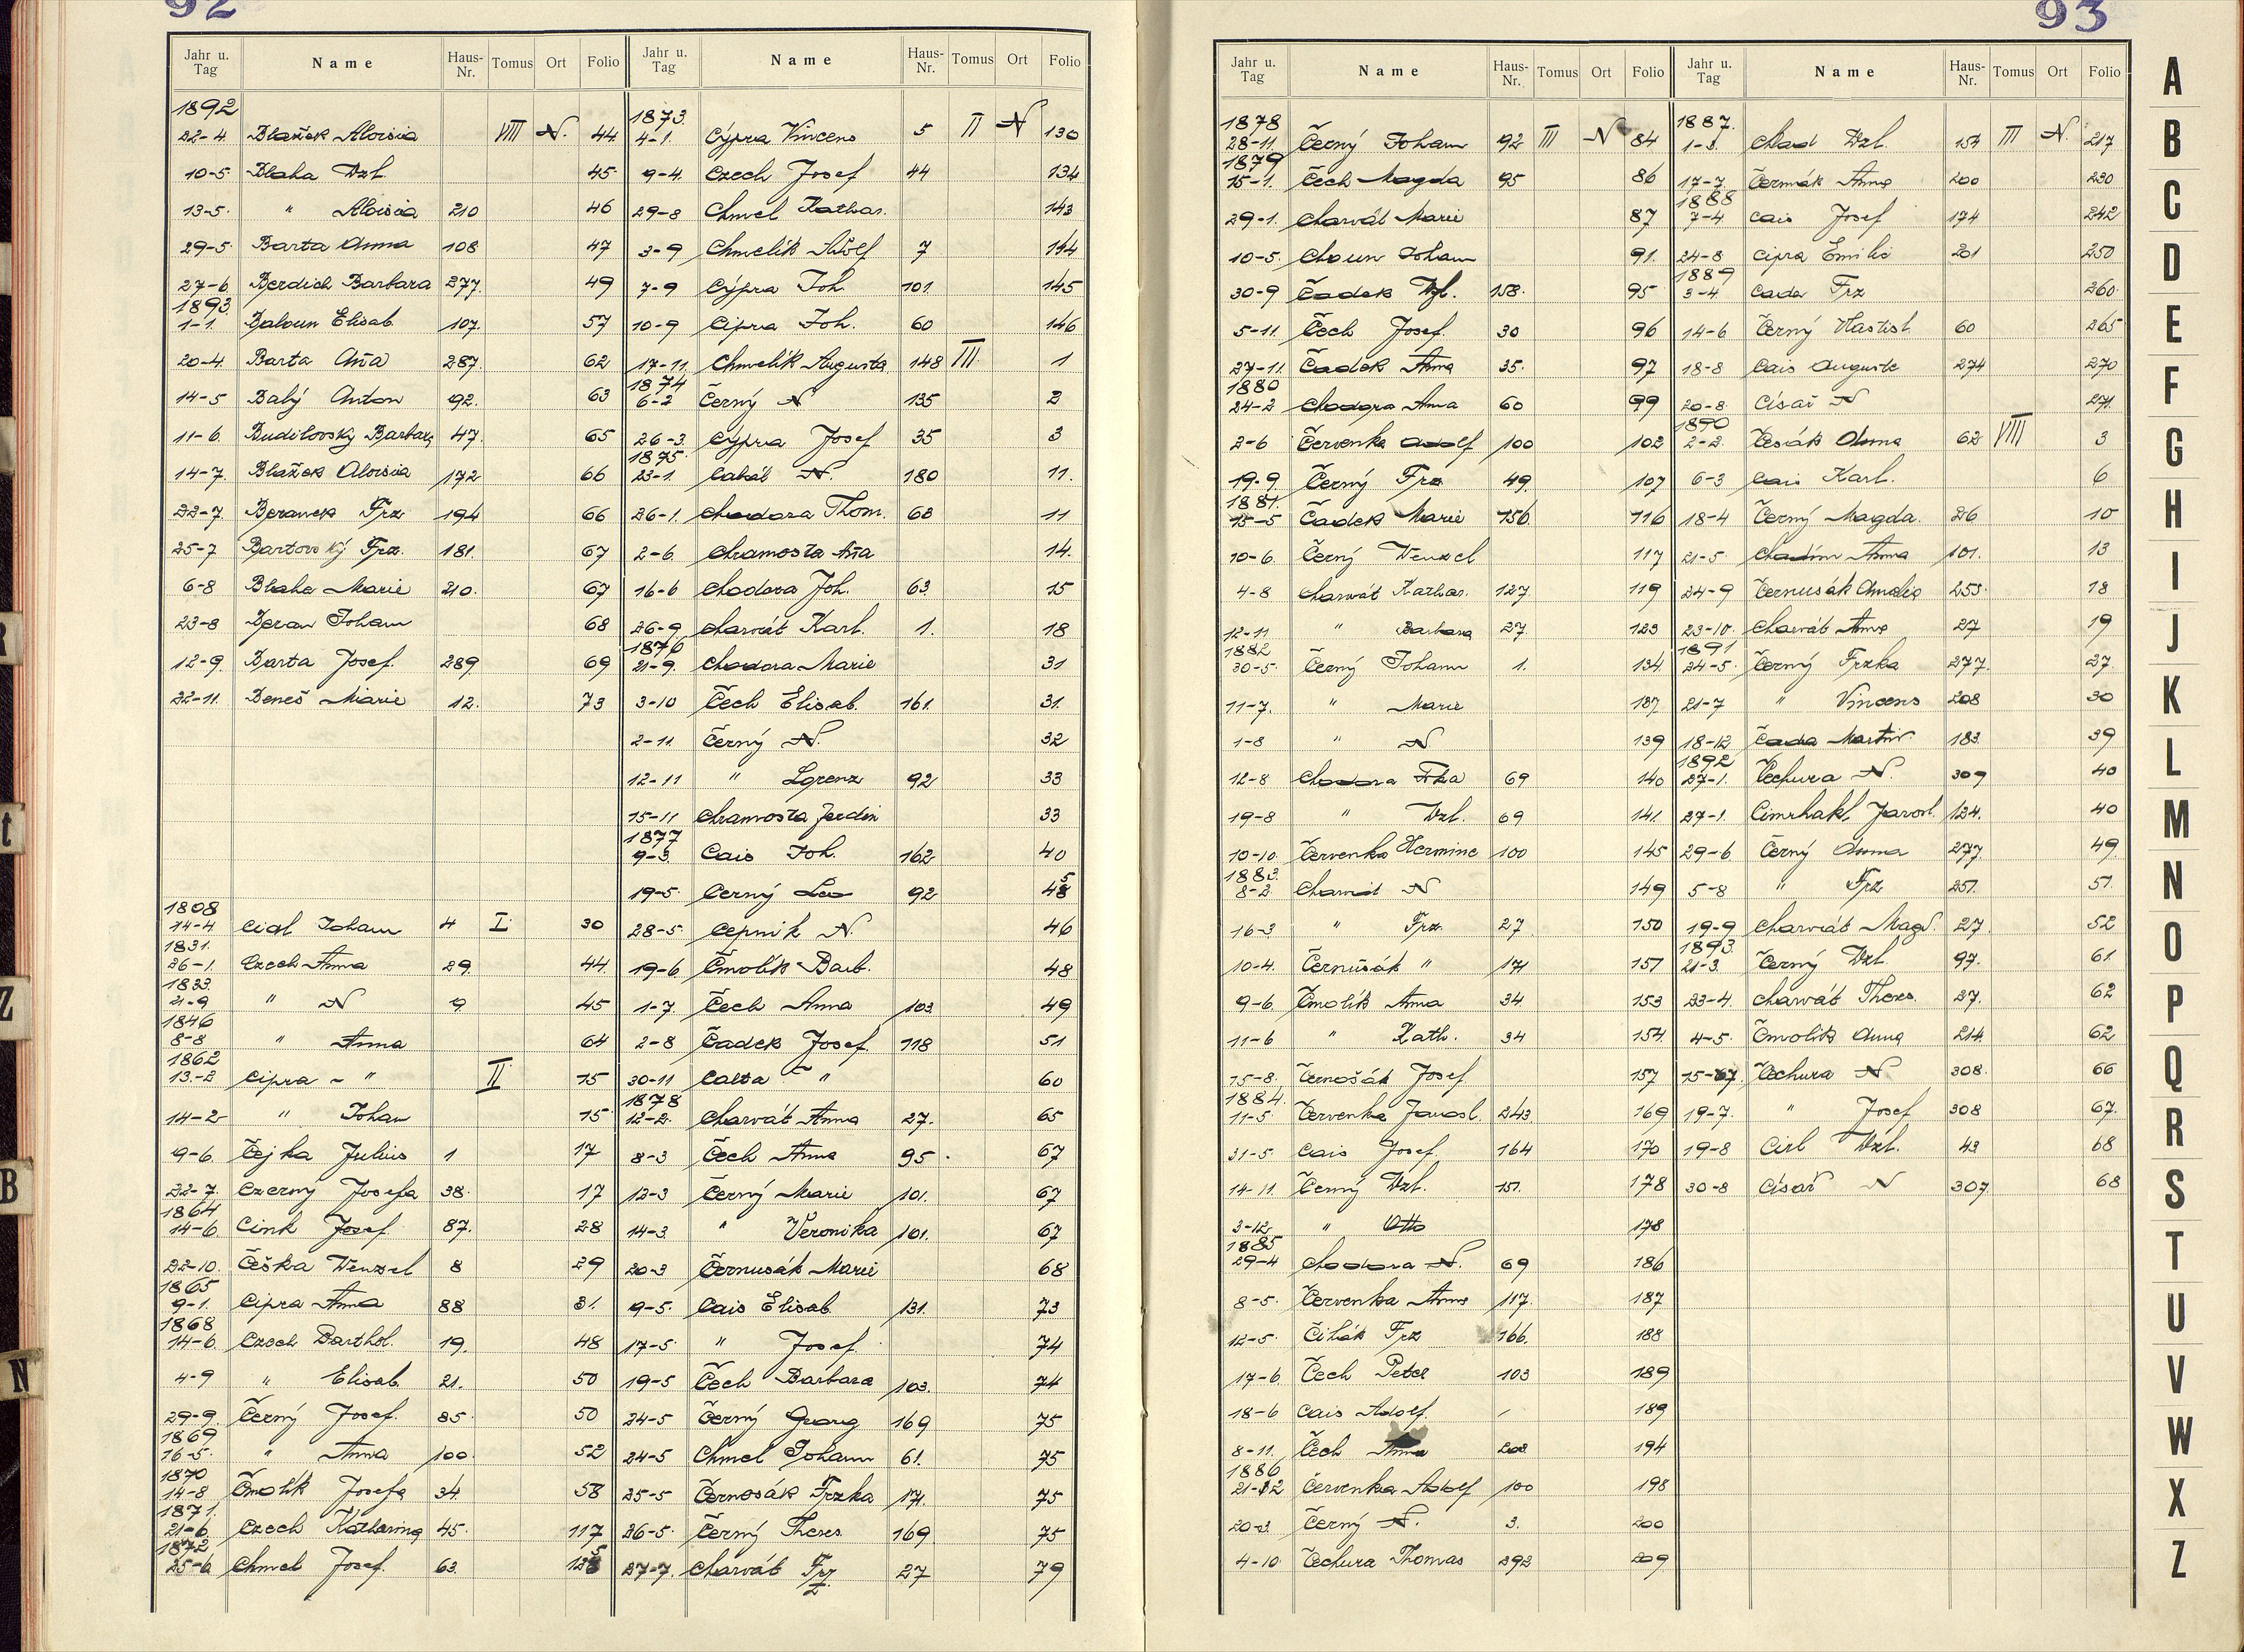 92
Jahr u. Tag Name Haus-Nr. Tomus Ort Folio
1892
22-4. Blažek Aloisia VIII N. 44.
10-5 Blaha Wzl. 45.
13-5. " Aloisia 210 46
29-5. Barta Anna 108 47
27-6. Berdich Barbara 277. 49
1893.
1-1. Baloun Elisab. 107. 57
20-4. Barta Ana 287. 62
14-5 Babý Anton 92. 63
11-6. Budilovský Barbara 47. 65
14-7. Blažek Aloisia 172 66
22-7. Beranek Frz. 194 66
25-7 Bartovský Frz. 181. 67
6-8 Blaha Marie 210. 67
23-8 Beran Johann 68
12-9. Barta Josef. 289. 69
22-11. Beneš Marie 12. 73
1808
14-4 Cidl Johann 4 I. 30
1831.
26-1. Czech Anna 29. 44.
1833.
21-9 " N 9. 45
1846
8-8 " Anna 64
1862
13.-2 Cipra - " II 15
14-2 " Johan 15
9-6. Čejka Julius 1 17
22-7. Czerný Josefa 38. 17
1864
14-6. Cink Josef. 87. 28
22-10. Češka Wenzel 8 29
1865
9-1. Cipra Anna 88 31.
1868
14-6. Czech Barthol. 19. 48
4-9 " Elisab. 21. 50
29-9. Černý Josef. 85. 50
1869
16-5. " Anna 100. 52
1870
14-8 Čmolík Josefa 34. 58
1871.
21-6. Czech Katharina 45. 117
1872
25-6. Chmel Josef. 63. 125
Jahr u. Tag Name Haus-Nr. Tomus Ort Folio
1873.
4-1. Cýpra Vincens 5 II N 130
9-4. Czech Josef 44 134
29-8 Chmel Kathar. 143
3-9 Chmelík Adolf 7 144
7-9 Cýpra Joh. 101. 145
10-9 Cipra Joh. 60 146
17-11. Chmelík Augusta 148 III. 1
1874
6-2 Černý N 135 2
26-3. Cypra Josef 35 3
1875.
23-1. Cabát N. 180 11.
26-1. Chodora Thom. 68 11
2-6. Chramosta Ana 14.
16-6 Chodora Joh. 63. 15
26-9. Charvát Karl. 1. 18
1876
21-9. Chodora Marie 31
3-10 Čech Elisab. 161. 31.
2-11. Černý N. 32
12-11 " Lorenz 92 33
15-11 Chramosta Ferdin 33
1877
9-3. Cais Joh. 162 40
19-5. Černý Leo 92 45
28-5. Cepnik N. 46
19-6 Čmolík Barb. 48
1-7. Čech Anna 103. 49
2-8 Čadek Josef. 118 51
30-11 Calta " 60
1878
12-2. Charvát Anna 27. 65
8-3 Čech Anna 95. 67
12-3 Černý Marie 101. 67
14-3. " Veronika 101. 67
20-3 Černusák Marie 68
9-5. Cais Elisab. 131. 73
17-5. " Josef. 74
19-5 Čech Barbara 103. 74
24-5 Černý Georg 169 75
24-5 Chmel Johann 61. 75
25-5 Černosák Frzka 171. 75
26-5. Černý Theres. 169 75
27-7. Charvát Frz 27 79
93
Jahr u. Tag Name Haus-Nr. Tomus Ort Folio
1878
28-11. Černý Johann 92 III N 84
1879
15-1. Čech Magda 95 86
29-1. Charvát Marie 87
10-5. Choun Johann 91.
30-9 Čadek Wzl. 158. 95
5-11. Čech Josef. 30 96
27-11. Čadek Anna 35. 97
1880
24-2 Chodora Anna 60 99
2-6 Červenka Adolf 100 102
19-9. Černý Frz 49. 107
1881.
15-5 Čadek Marie 156. 116
10-6. Černý Wenzel 117
4-8 Charvát Kathar. 127. 119
12-11 " Barbara 27. 123
1882
30-5. Černý Johann 1. 134.
11-7. " Marie 137
1-8 " N 139
12-8 Chodora Fka 69 140
19-8 " Wzl. 69 141.
10-10. Červenka Hermine 100 145
1883.
8-2. Charvát N 149
16-3 " Frz. 27. 150
10-4. Černusák " 171 151
9-6. Čmolík Anna 34. 153
11-6 " Kath. 34 154.
15-8. Černošák Josef 157
1884.
11-5. Červenka Jarosl. 243. 169
31-5. Cais Josef. 164 170
14-11. Černý Wzl. 151. 178
3-12. " Otto 178
1885
29-4 Chodora N. 69 186
8-5. Červenka Anna 117. 187
12-5. Čihák Frz 166. 188
17-6. Čech Peter 103 189
18-6 Cais Adolf. 189
8-11. Čech Anna 208 194
1886
21-12 Červenka Adolf 100 198
20-3. Černý N. 3. 200
4-10. Čechura Thomas 292 209
Jahr u. Tag Name Haus-Nr. Tomus Ort Folio
1887.
1-3. Chlad Wzl. 154 III N. 217
17-7. Čermák Anna 200 230
1888
7-4. Cais Josef 174 242
24-8 Cipra Emilie 201 250
1889
3-4. Cada Frz 260.
14-6 Černý Vlastisl. 60 265
18-8 Cais Auguste 274 270
20-8. Císař N 271.
1890
2-2. Česák Anna 62 VIII 3
6-3 Cais Karl. 6
18-4 Černý Magda. 26 10
21-5. Chadím Anna 101. 13
24-9 Černusák Amalia 255. 18
23-10. Charvát Anna 27 19
1891
24-5. Černý Frzka 277. 27.
21-7 " Vincens 208 30
18-12 Čada Martin. 183. 39
1892
27-1. Čechura N. 309 40
27-1. Cimrhakl Jarosl. 124. 40
29-6. Černý Anna 277. 49.
5-8 " Frz 257. 51.
19-9 Charvát Magd. 27. 52
1893.
21-3. Černý Wzl 97. 61.
23-4. Charvát Theres. 27. 62
4-5. Čmolík Anna 214. 62.
15-7. Čechura N 308. 66
19-7. " Josef 308 67.
19-8 Cirl Wzl. 43 68
30-8 Císař N 307. 68
A
B
C
D
E
F
G
H
I
J
K
L
M
N
O
P
Q
R
S
T
U
V
W
X
Z
R
t
Z
B
N